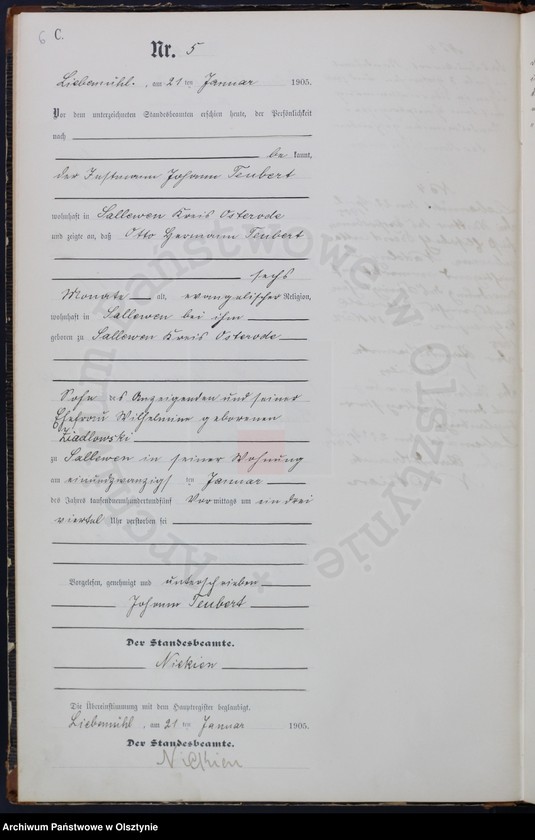 6 C.
Nr. 5
Liebemühl, am 21 ten Januar 1905.
Vor dem unterzeichneten Standesbeamten erschien heute, der Persönlichkeit
nach
be kannt,
der Instmann Johann Teubert
wohnhaft in Sallewen Kreis Osterode
und zeigte an, daß Otto Hermann Teubert
sechs
Monate alt, evangelischer Religion,
wohnhaft in Sallewen bei ihm
geboren zu Sallewen Kreis Osterode
Sohn des Anzeigenden und seiner
Ehefrau Wilhelmine geborenen
Ziadlowski
zu Sallewen in seiner Wohnung
am einundzwanzigsten Januar
des Jahres tausendneunhundertundfünf Vormittags um ein drei
viertel Uhr verstorben sei
Vorgelesen, genehmigt und unterschrieben
Johann Teubert
Der Standesbeamte.
Niekien
Die Übereinstimmung mit dem Hauptregister beglaubigt.
Liebemühl, am 21 ten Januar 1905.
Der Standesbeamte.
Niekien
Archiwum Państwowe w Olsztynie *
Archiwum Państwowe w Olsztynie